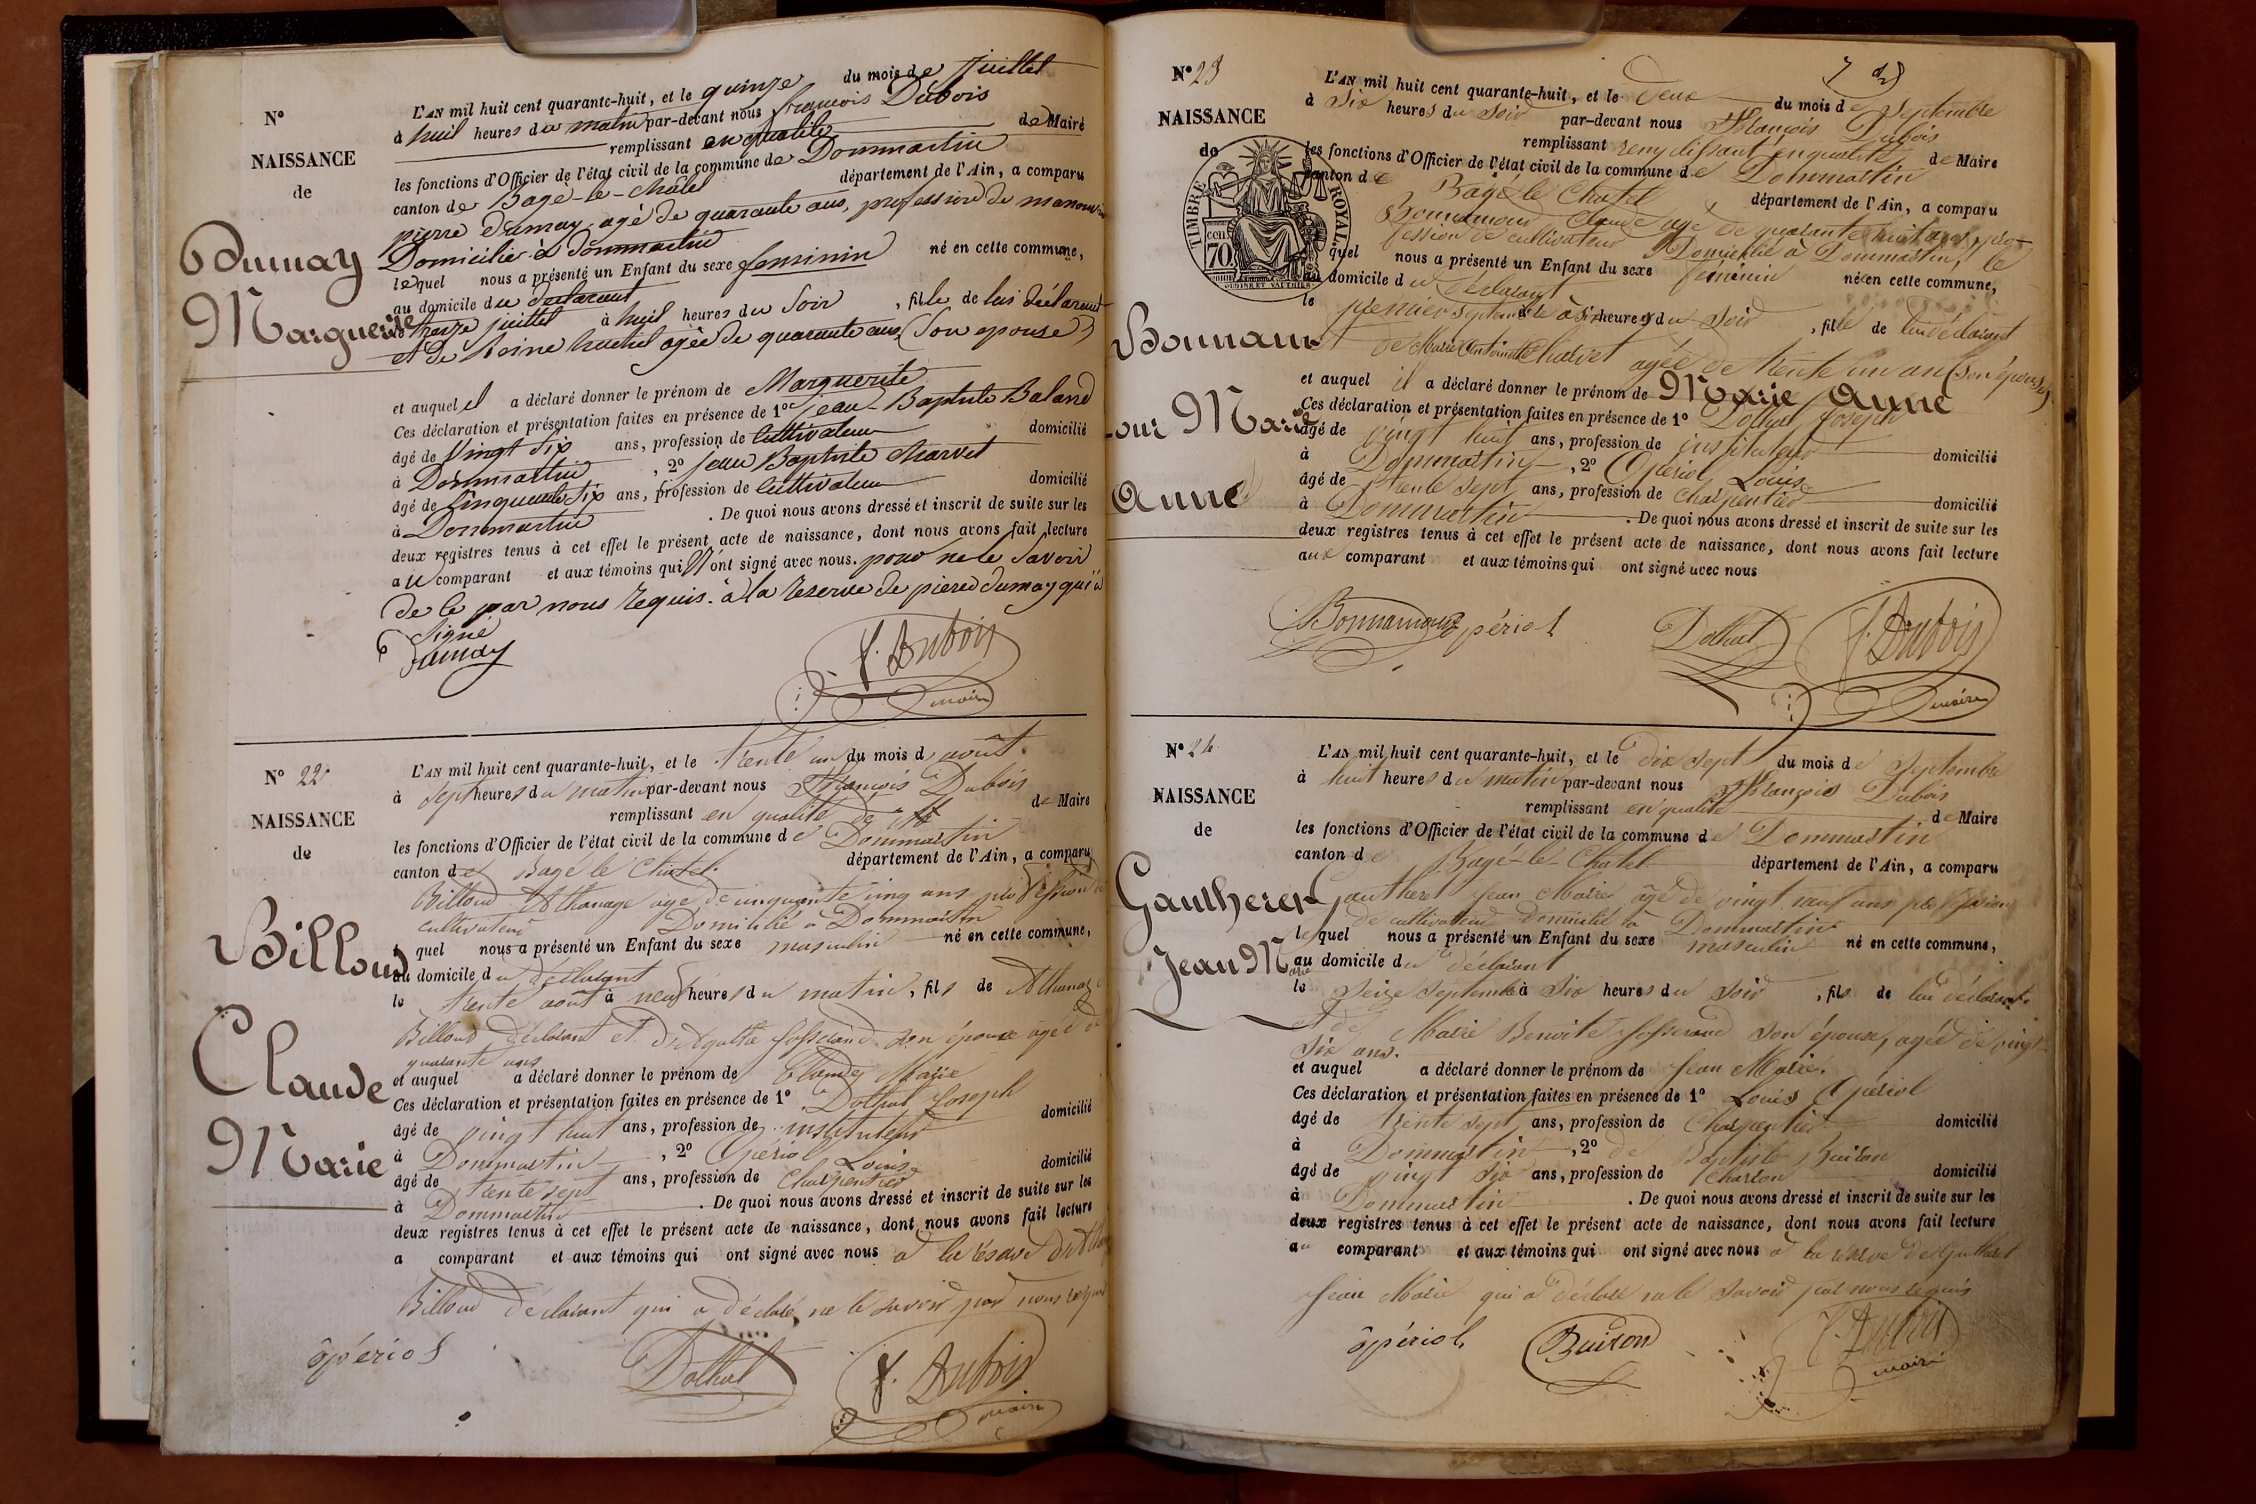 N°
NAISSANCE
de
Dumay
Marguerite
L'AN mil huit cent quarante-huit, et le quinze du mois de juillet
à huit heures du matin par-devant nous françois Dubois
remplissant en qualité de Maire
les fonctions d'Officier de l'état civil de la commune de Dommartin
canton de Bagé-le-Châtel département de l'Ain, a comparu
pierre dumay, agé de quarante ans, profession de
Domicilié à Dommartin
lequel nous a présenté un Enfant du sexe feminin né en cette commune,
au domicile du declarant
le treize juillet à huit heures du Soir, fille de lui déclarant
et de Reine agée de quarante ans, (Son epouse)
et auquel il a déclaré donner le prénom de Marguerite
Ces déclaration et présentation faites en présence de 1° jean-Baptiste Baland
âgé de Vingt Six ans, profession de Cultivateur domicilié
à Dommartin, 2° Jean Baptiste Marvet
âgé de Cinquante Six ans, profession de Cultivateur domicilié
à Dommartin. De quoi nous avons dressé et inscrit de suite sur les
deux registres tenus à cet effet le présent acte de naissance, dont nous avons fait lecture
au comparant et aux témoins qui n'ont signé avec nous. pour ne le Savoir
de ce par nous requis. à la reserve de piere dumay qui a
Signé
dumay f. Dubois
maire
N° 22
NAISSANCE
de
Billoud
Claude
Marie
L'AN mil huit cent quarante-huit, et le trente un du mois d août.
à sept heures du matin par-devant nous François Dubois
remplissant en qualité de Maire
les fonctions d'Officier de l'état civil de la commune de Dommartin
canton de Bagé le Chatel. département de l'Ain, a comparu
Billoud Athanaze âgé de cinquante cinq ans profession de
cultivateur Domicilié à Dommartin
quel nous a présenté un Enfant du sexe masculin né en cette commune,
au domicile du déclarant
le trente août à neuf heures du matin, fils de Athanaze
Billoud déclarant et d'Agathe Josserand son épouse agée de
quarante ans
et auquel a déclaré donner le prénom de Claude Marie
Ces déclaration et présentation faites en présence de 1° Dothal Joseph
âgé de vingt huit ans, profession de instituteur domicilié
à Dommartin, 2° Opériol Louis
âgé de trente sept ans, profession de Charpentier domicilié
à Dommartin. De quoi nous avons dressé et inscrit de suite sur les
deux registres tenus à cet effet le présent acte de naissance, dont nous avons fait lecture
a comparant et aux témoins qui ont signé avec nous à la réserve
Billoud déclarant qui a déclaré ne le savoir par nous requis
opériol Dothal f. Dubois
maire
7
N° 23
NAISSANCE
de
TIMBRE ROYAL
cen 70
Bonnam
our Marie
Anne
L'AN mil huit cent quarante-huit, et le deux du mois de Septembre
à Six heures du Soir par-devant nous François Dubois
remplissant remplissant en qualité de Maire
les fonctions d'Officier de l'état civil de la commune de Dommartin
canton de Bagé le Chatel département de l'Ain, a comparu
Bonnamour Claude agé de quarante huit ans, pro-
fession de cultivateur Domicilié à Dommartin, le
quel nous a présenté un Enfant du sexe feminin né en cette commune,
au domicile du déclarant
le premier septembre à Six heures du Soir, fille de lui déclarant
et de Marie Antoinette Charvet agée de trente un ans (son épouse)
et auquel il a déclaré donner le prénom de Marie Anne
Ces déclaration et présentation faites en présence de 1° Dothal Joseph
âgé de vingt huit ans, profession de instituteur domicilié
à Dommartin, 2° Opériol Louis
âgé de trente sept ans, profession de charpentier domicilié
à Dommartin. De quoi nous avons dressé et inscrit de suite sur les
deux registres tenus à cet effet le présent acte de naissance, dont nous avons fait lecture
aux comparant et aux témoins qui ont signé avec nous
Bonnamour opériol Dothal f. Dubois
maire
N° 24
NAISSANCE
de
Gautheret
Jean Marie
L'AN mil huit cent quarante-huit, et le dix sept du mois de Septembre
à huit heures du matin par-devant nous François Dubois
remplissant en qualité de Maire
les fonctions d'Officier de l'état civil de la commune de Dommartin
canton de Bagé-le-Chatel département de l'Ain, a comparu
Gautheret Jean Marie âgé de vingt neuf ans profession
de cultivateur domicilié à Dommartin
lequel nous a présenté un Enfant du sexe masculin né en cette commune,
au domicile du déclarant
le Seize Septembre à Six heures du Soir, fils de lui déclarant
et de Marie Benoite Josserand son épouse, agée de vingt
Six ans.
et auquel a déclaré donner le prénom de Jean Marie.
Ces déclaration et présentation faites en présence de 1° Louis Opériol
âgé de trente sept ans, profession de Charpentier domicilié
à Dommartin, 2° de Baptiste Buiron
âgé de vingt Six ans, profession de Charron domicilié
à Dommartin. De quoi nous avons dressé et inscrit de suite sur les
deux registres tenus à cet effet le présent acte de naissance, dont nous avons fait lecture
au comparant et aux témoins qui ont signé avec nous à la réserve de Gautheret
Jean Marie qui a déclaré ne le savoir par nous requis
opériol Buiron f. Dubois
maire